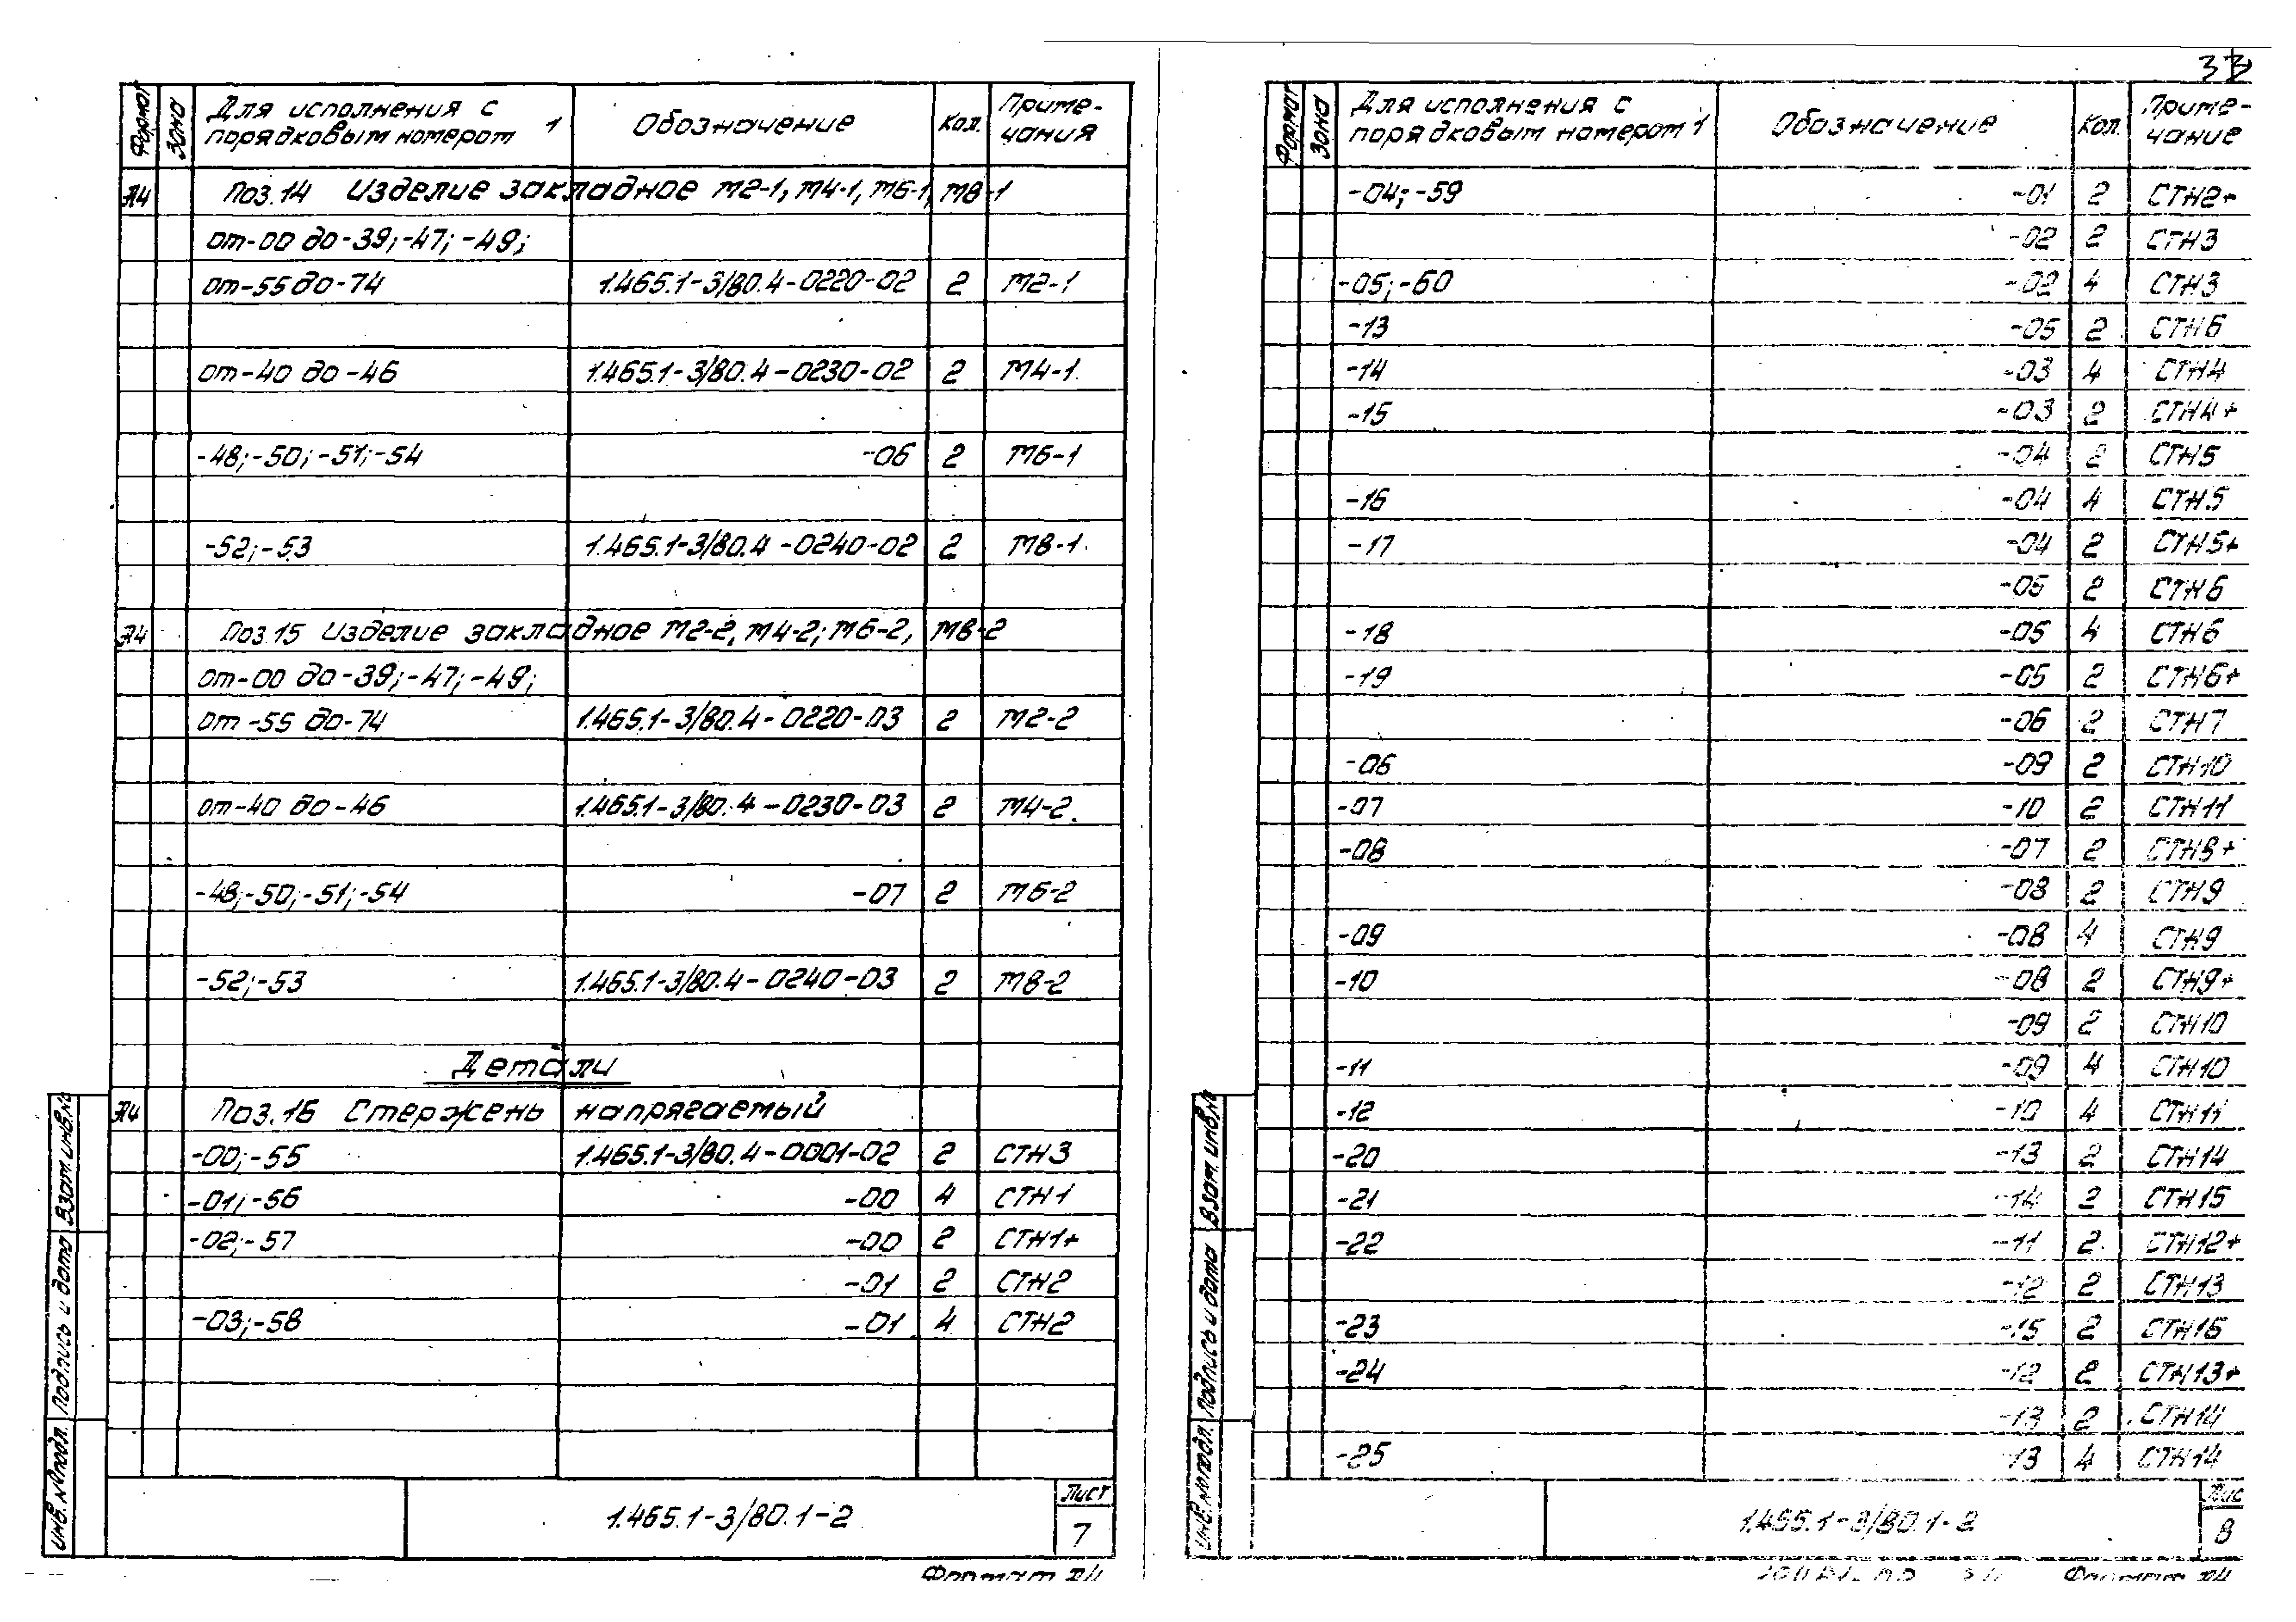 Формат
Зона
Для исполнения с порядковым номером 1
Обозначение
Кол.
Приме-
чания
А4 Поз.14 Изделие закладное М2-1, М4-1, М6-1, М8-1
от-00 до-39;-47;-49;
от-55 до-74 1.465.1-3/80.4-0220-02 2 М2-1
от-40 до-46 1.465.1-3/80.4-0230-02 2 М4-1
-48;-50;-51;-54 -06 2 М6-1
-52;-53 1.465.1-3/80.4-0240-02 2 М8-1
А4 Поз.15 Изделие закладное М2-2, М4-2; М6-2, М8-2
от-00 до-39;-47;-49;
от-55 до-74 1.465.1-3/80.4-0220-03 2 М2-2
от-40 до-46 1.465.1-3/80.4-0230-03 2 М4-2
-48;-50;-51;-54 -07 2 М6-2
-52;-53 1.465.1-3/80.4-0240-03 2 М8-2
Детали
А4 Поз.16 Стержень напрягаемый
-00;-55 1.465.1-3/80.4-0001-02 2 СТН3
-01;-56 -00 4 СТН1
-02;-57 -00 2 СТН1+
-01 2 СТН2
-03;-58 -01 4 СТН2
Взам.инв.№
Подпись и дата
Инв.№подл.
1.465.1-3/80.1-2
Лист
7
Формат А4
Формат
Зона
Для исполнения с порядковым номером 1
Обозначение
Кол.
Приме-
чание
-04;-59 -01 2 СТН2+
-02 2 СТН3
-05;-60 -02 4 СТН3
-13 -05 2 СТН6
-14 -03 4 СТН4
-15 -03 2 СТН4+
-04 2 СТН5
-16 -04 4 СТН5
-17 -04 2 СТН5+
-05 2 СТН6
-18 -05 4 СТН6
-19 -05 2 СТН6+
-06 2 СТН7
-06 -09 2 СТН10
-07 -10 2 СТН11
-08 -07 2 СТН8+
-08 2 СТН9
-09 -08 4 СТН9
-10 -08 2 СТН9+
-09 2 СТН10
-11 -09 4 СТН10
-12 -10 4 СТН11
-20 -13 2 СТН14
-21 -14 2 СТН15
-22 -11 2 СТН12+
-12 2 СТН13
-23 -15 2 СТН16
-24 -12 2 СТН13+
-13 2 СТН14
-25 -13 4 СТН14
Взам.инв.№
Подпись и дата
Инв.№подл.
1.465.1-3/80.1-2
Лис
8
Формат А4